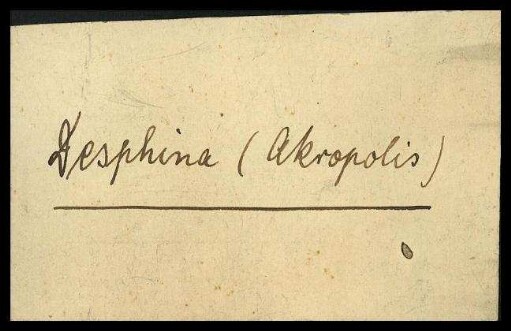 Desphina (Akropolis)